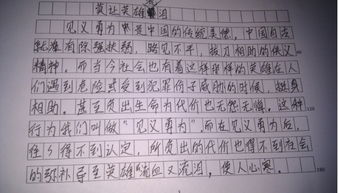 莫让英雄泪
见义勇为是中国的传统美德，中国自古
就流有除强扶弱，路见不平，拔刀相助的侠义
精神。而当今社会也有着这样那样的英雄在人
们遇到危险或受到犯罪份子威胁的时候，挺身
相助。甚至负出生命为代价也无怨无悔，这种
行为我们叫做“见义勇为”，而在见义勇为后，
往々得不到认定，所负出的代价也得不到社会
的弥补导至英雄“流血又流泪，使人心寒。